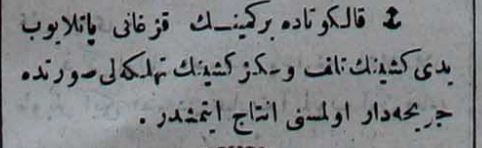 ⚓ قالكوتاده بر كمينـك قزغانى پاتلايوب
يدى كشينك تلف وسكز كشينك تهلكه لى صورتده
جريحه دار اولمسنى انتاج ايتمشدر .